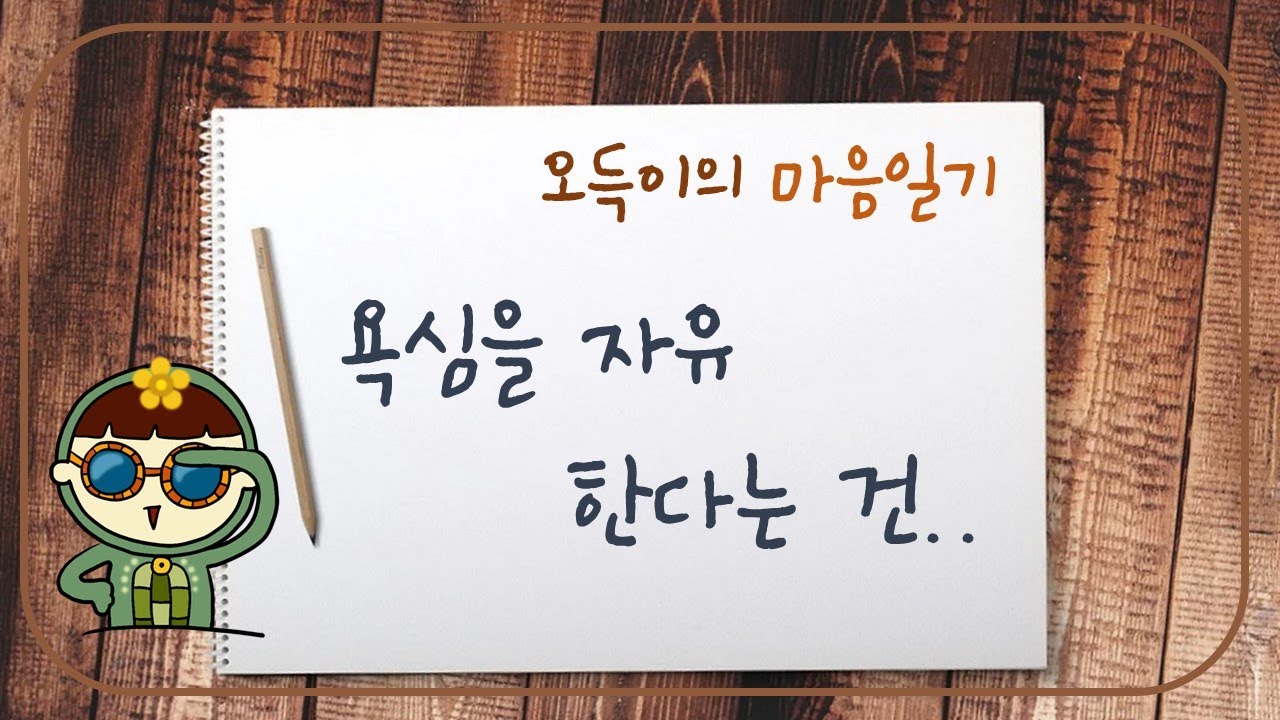 오득이의 마음일기
욕심을 자유
한다는 건..